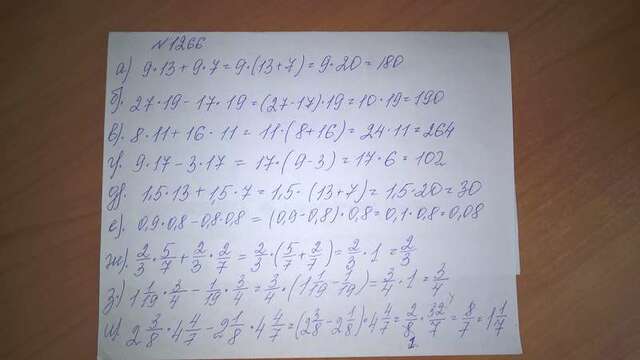 №1266
а) 9·13+9·7=9·(13+7)=9·20=180
б) 27·19-17·19=(27-17)·19=10·19=190
в) 8·11+16·11=11·(8+16)=24·11=264
г) 9·17-3·17=17·(9-3)=17·6=102
д) 1,5·13+1,5·7=1,5·(13+7)=1,5·20=30
е) 0,9·0,8-0,8·0,8=(0,9-0,8)·0,8=0,1·0,8=0,08
ж) 2/3·5/7+2/3·2/7=2/3·(5/7+2/7)=2/3·1=2/3
з) 1 1/19·3/4-1/19·3/4=3/4·(1 1/19-1/19)=3/4·1=3/4
и) 2 3/8·4 4/7-2 1/8·4 4/7=(2 3/8-2 1/8)·4 4/7=2/8·32/7=8/7=1 1/7